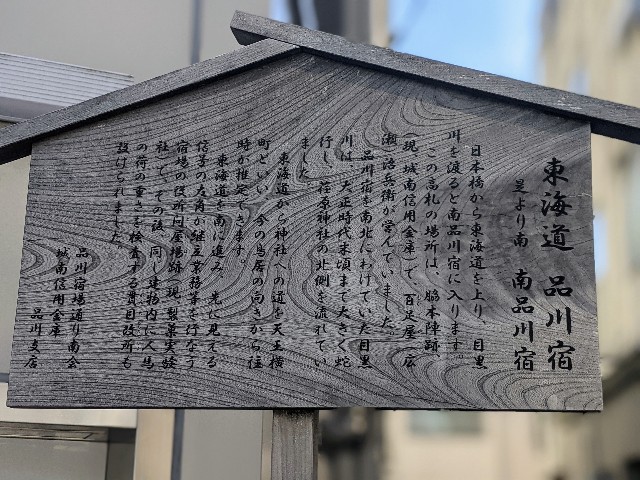 東海道 品川宿
是より南 南品川宿
日本橋から東海道を上り、目黒
川を渡ると南品川宿に入ります。
この高札の場所は、脇本陣跡、
(現 城南信用金庫)で、百足屋 広
瀬 治兵衛が営んでいました。
品川宿を南北にわけていた目黒
川は、大正時代末頃まで大きく蛇
行し、荏原神社の北側を流れてい
ました。
東海道から神社への道を天王横
町といい、今の鳥居の向きから往
時が推定できます。
東海道を南に進み、先に見える
信号の左角が継立業務等を行なう
宿場の役所問屋場跡(現 製菓実験
社)で、その後、同じ建物内に人馬
の荷の重さを検査する貫目改所も
設けられました。
品川宿場通り南会
城南信用金庫
品川支店